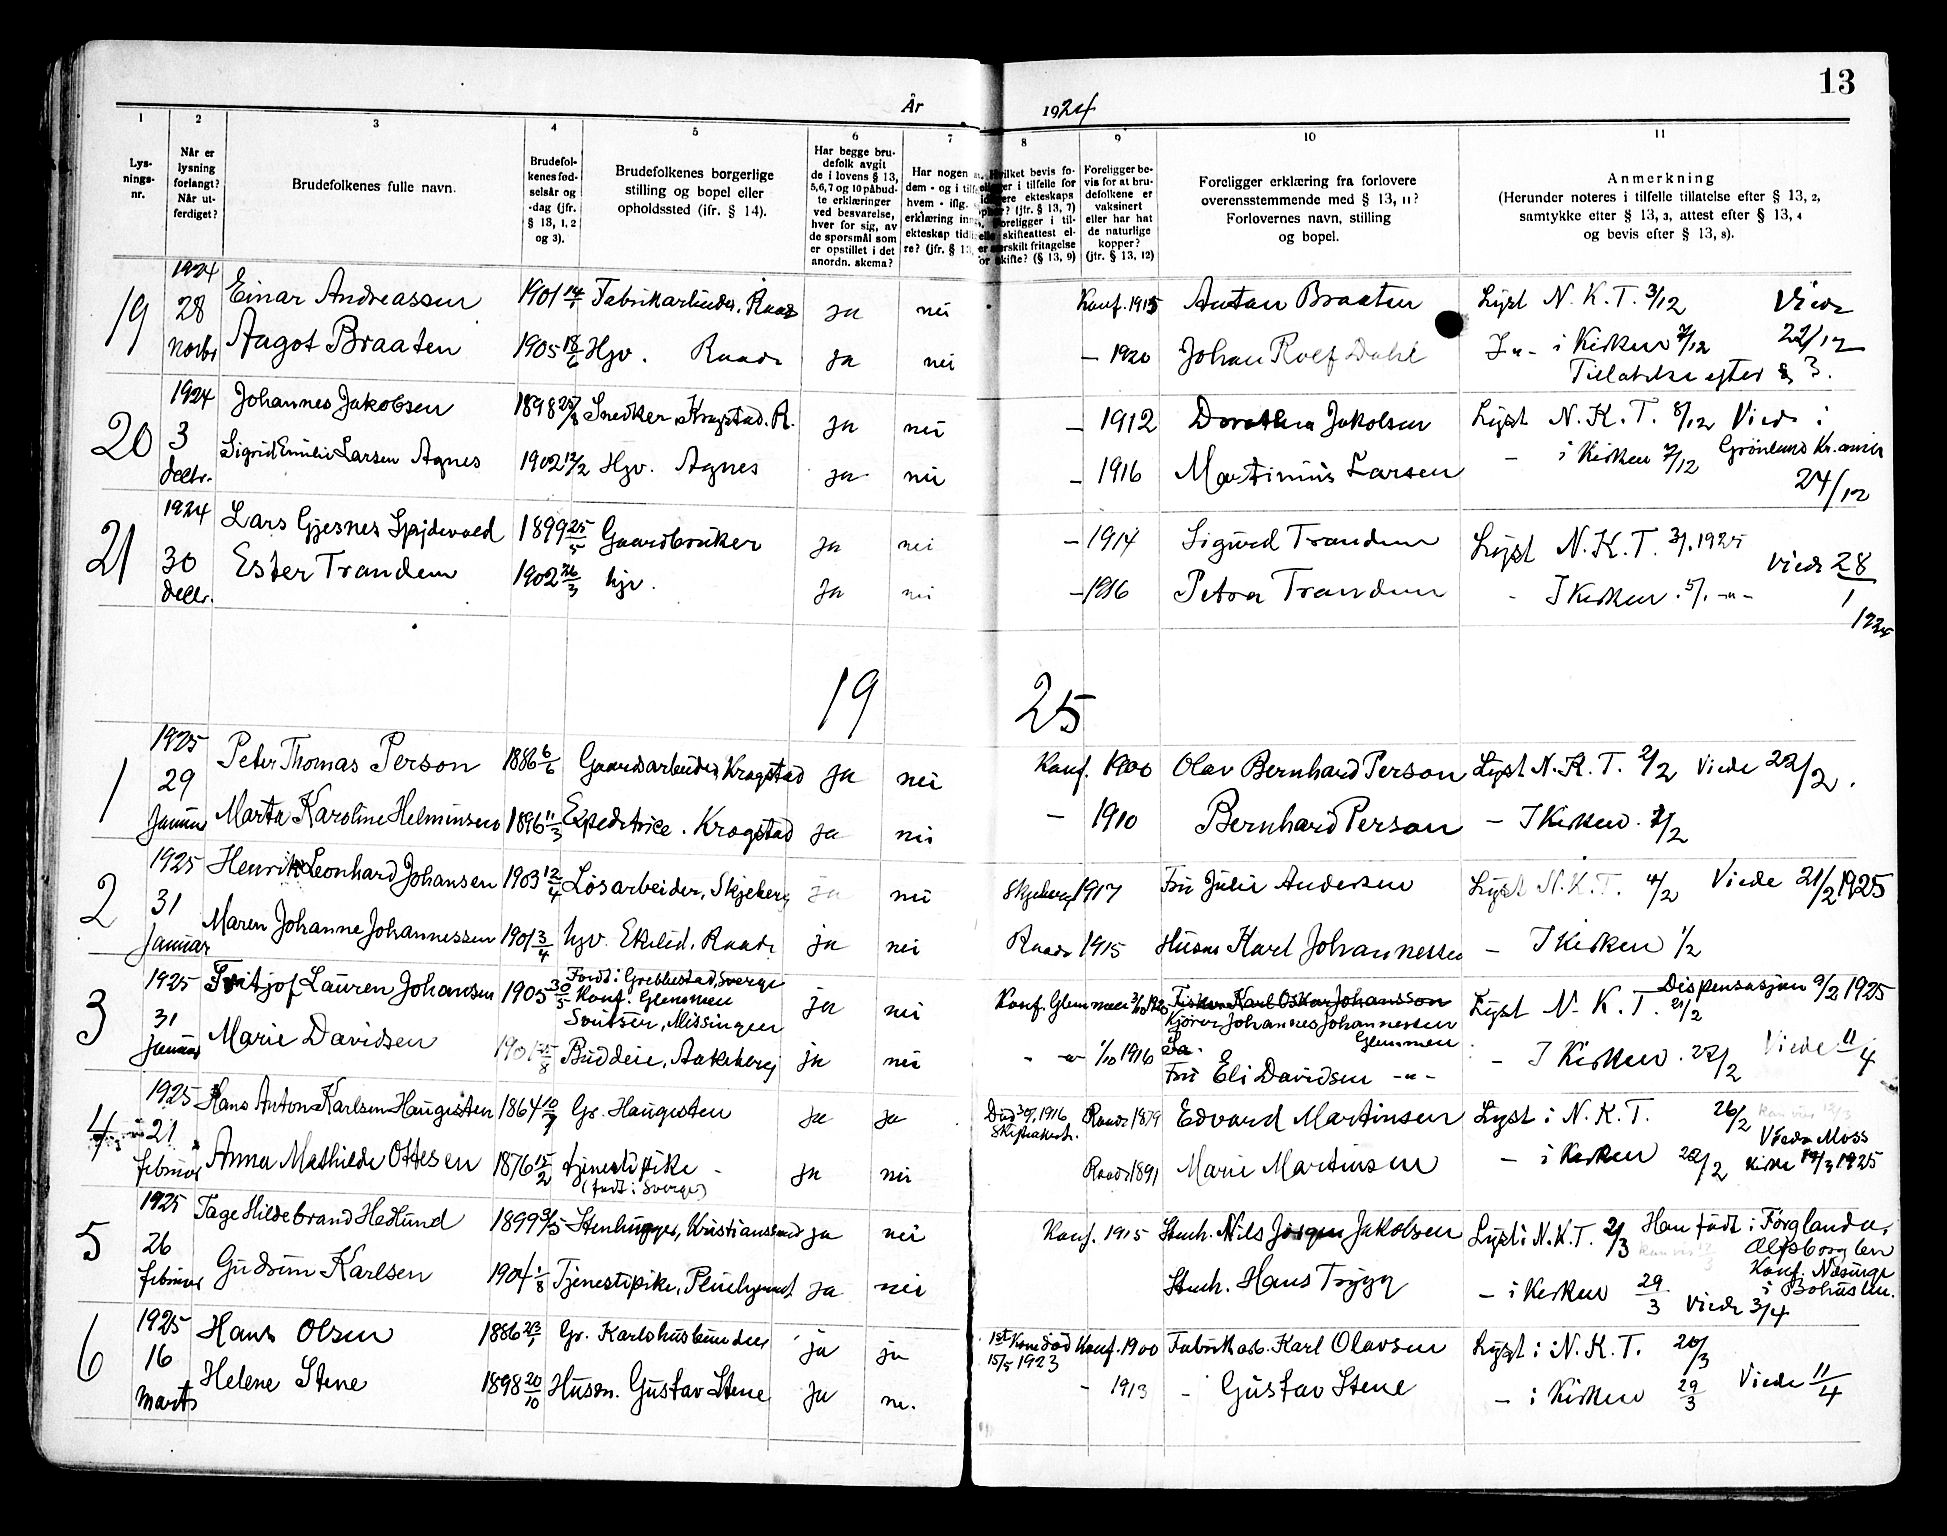 13
År 1924
1 2 3 4 5 6 7 8 9 10 11
Lys-
nings-
nr.
Når er
lysning
forlangt?
Når ut-
ferdiget?
Brudefolkenes fulle navn.
Brudefol-
kenes fød-
selsår og
-dag (jfr.
§ 13, 1, 2
og 3).
Brudefolkenes borgerlige
stilling og bopel eller
opholdssted (ifr. § 14).
Har begge bru-
defolk avgit
de i lovens § 13,
5,6,7 og 10 påbud-
te erklæringer
ved besvarelse,
hver for sig, av
de spørsmål som
er opstillet i det
anordn. skema?
Har nogen
dem - og i tilf
hvem - iflg.
erklæring
ekteskap tid
re? (jfr. § 13
Foreligger be-
vis for at bru-
defolkene er
vaksinert
eller har hat
de naturlige
kopper?
(jfr. § 13, 12)
Foreligger erklæring fra forlovere
overensstemmende med § 13, 11?
Forlovernes navn, stilling
og bopel.
Anmerkning
(Herunder noteres i tilfelle tillatelse efter § 13, 2,
samtykke efter § 13, 3, attest efter § 13, 4
og bevis efter § 13, 8).
19 1924 28 Novbr
Einar Andreassen 1901 14/1 Fabrikarbeider, Raade ja nei Konf. 1915 Anton Braaten Lyst N. K. T. 3/12 Viede
Aagot Braaten 1905 18/6 Hjv. Raade ja nei — 1920 Johan Rolf Dahl I -"- i Kirken 7/12 22/12
Tillatelse efter § 3.
20 1924 3 decbr.
Johannes Jakobsen 1898 Snedker, Kragstad. R. ja nei — 1912 Dorothea Jakobsen Lyst N. K. T. 8/12 Viede i
Sigrid Emilie Larsen Agnes 1902 12/2 Hjv. Agnes ja nei — 1916 Martinius Larsen — i Kirken 7/12 Grønland Kr.ania
24/12
21 1924 30 decbr.
Lars Gjesnes Spydevold 1899 25/5 Gaardbruker ja nei — 1914 Sigurd Trandem Lyst N. K. T. 3/1.1925
Ester Trandem 1902 26/3 hjv. ja nei — 1916 Petra Trandem - I Kirken . 5/1. -"- Viede 28/1
192
19 25
1 1925 29 Januar
Peter Thomas Person 1886 6/6 Gaardsarbeider, Kragstad ja nei Konf. 1900 Olav Bernhard Person Lyst N. K. T. 2/2 Viede 22/2.
Marta Karoline Helminsen 1896 11/3 Expeditrice. Kragstad ja nei — 1910 Bernhard Person — I Kirken. /2
2 1925 31 Januar
Henrik Leonhard Johansen 1903 12/4 Løsarbeider, Skjeberg ja nei Skjeberg 1917 Fru Julie Andersen Lyst N. K. T. 4/2 Viede 21/2 1925
Maren Johanne Johannessen 1901 3/4 hjv. Ekelid. Raade ja nei Raade 1915 Husm Karl Johannessen — I Kirken 1/2
3 1925 31 Januar
Fritjof Lauren Johansen 1905 30/5 Født i Grebbestad, Sverge
Konf. Glemmen
Sveitser, Missingen ja nei Konf. Glemmen 1920 Fisker Karl Oskar Johansson
Kjører Johannes Johannessen
Glemmen Lyst N. K. T. 21/2 Dispensasjon 9/2 1925
Marie Davidsen 1901 25/8 Buddeie, Aakeberg ja nei - -"- 1/10 1916 Fru Eli Davidsen -"- — I Kirken . 22/2 Viede 11/4
4 1925 21 februar
Hans Anton Karlsen Haugesten 1864 10/7 Gr. Haugesten ja ja Død 1916 Raade 1879 Edvard Martinsen Lyst i N. K. T. 26/2
Anna Mathilde Ottesen 1876 15/2 tjenestepike -
(født i Sverge) ja nei Raade 1891 Marie Martinsen — i Kirken 22/2 Viede Moss
kirke 14/3 1925
5 1925 26 februar
Tage Hildebrand Hedlund 1899 3/5 Stenhugger, Kristianssund ja nei Konf. 1915 Stenh. Nils Jørgen Jakobsen Lyst i N. K. T. 2/3 Han født i Förglanda,
Gudrun Karlsen 1904 1/8 Tjenestepike, ja nei Stenh. Hans Trygg — i Kirken 29/3 Viede 3/4
Konf. i Bohuslen.
6 1925 16 Marts
Hans Olsen 1886 23/1 Gr. Karlshusbunden ja ja 1st Kone død
15/5 1923 Konf. 1900 Fabrikarb. Karl Olavsen Lyst i N. K. T. 20/3
Helene Stene 1898 20/10 Husm. Gustav Stene ja nei. - 1913 - Gustav Stene — i Kirken 29/3 Viede 11/4